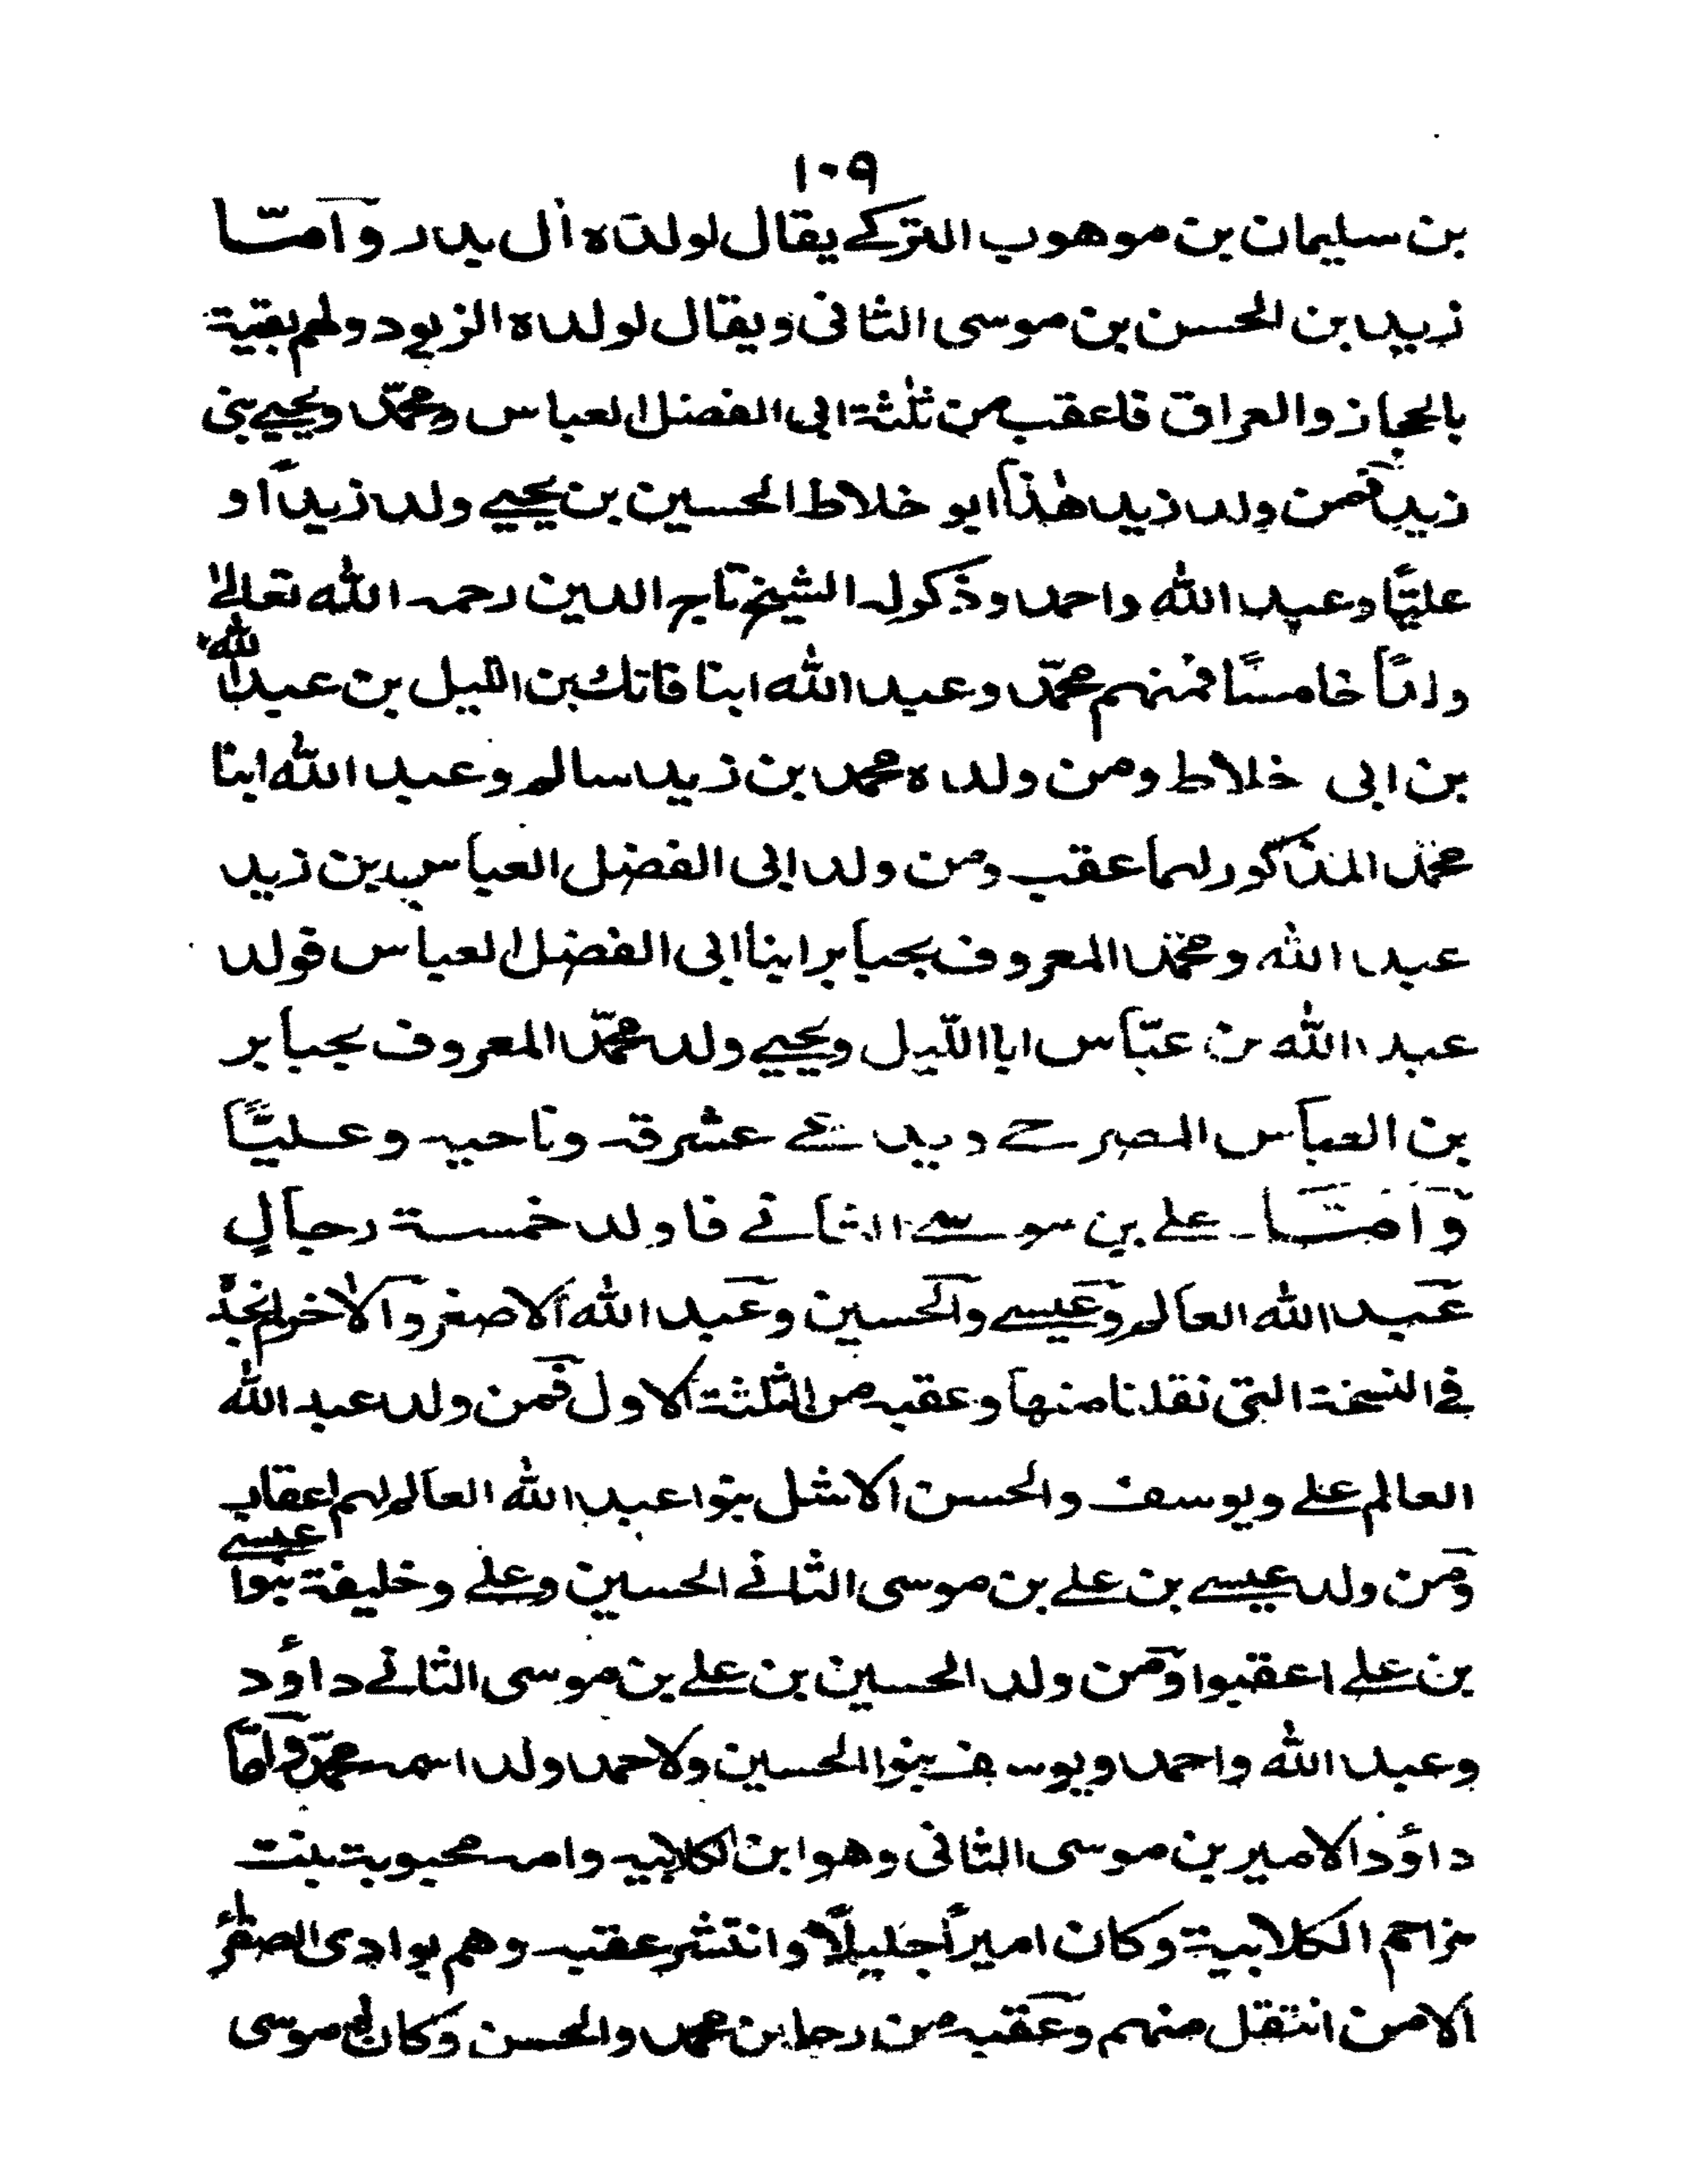 ١٠٩
بن سليمان بن موهوب التركے يقال لولده اٰل بدر وَاَمّا
زيد بن الحسن بن موسى الثانى ويقال لولده الزيود ولهم بقية
بالحجاز والعراق فاعقب من ثلٰثة ابى الفضل العباس ومحمّد ويحيے بنى
زيد فمن ولد زيد هٰذا ابو خلاط الحسين بن يحيے ولد زيداً و
عليًّا وعبد الله واحمد وذكر له الشيخ تاج الدين رحمه الله تعالےٰ
ولدًا خامسًا فمنهم محمّد وعبد الله ابنا فاتك بن الليل بن عبد الله
بن ابى خلاط ومن ولده محمد بن زيد سالم وعبد الله ابنا
محمّد المذكور لهما عقب ومن ولد ابى الفضل العباس بن زيد
عبد الله ومحمّد المعروف بجبابر ابنا ابى الفضل العباس فولد
عبد الله بن عبّاس ابا اللّيل ويحيے ولد محمّد المعروف بجبابر
بن العباس عشرقه وناحيه وعليًّا
وَاَمّا علے بن موسے الثانے فاولد خمسة رجالٍ
عَبد الله العالم وَعيسے وَالحسين وعَبد الله الاصغر وَالاٰخر لم نجدْ
فے النسخة التى نقلنا منها وعقبه من الثلٰثة الاول فَمن ولد عبد الله
العالم علے ويوسف والحسن الاشل بنوا عبد الله العالم لهم اعقاب
وَمن ولد عيسے بن علے بن موسى الثانے الحسين وعلے وخليفة بنوا عيسے
بن علے اعقبوا وَمن ولد الحسين بن علے بن موسى الثانے داوٗد
وعبد الله واحمد ويوسف بنوا الحسين ولاحمد ولد اسمه محمّد وَامّا
داوٗد الامير بن موسى الثانى وهو ابن الكلابيه وامه محبوبة بنت
مزاحم الكلابية وكان اميراً جليلًا وانتشر عقبه وهم بوادى الصفراء
الا من انتقل منهم وعَقبه من رجلين محمد والحسن وكان له موسى